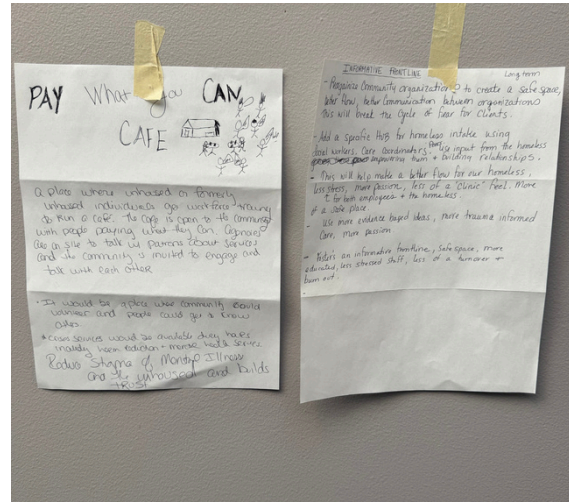 PAY What you CAN
CAFE
a place where unhoused or formerly
unhoused individuals get workforce training
to run a cafe. The cafe is open to the community
with people paying what they can. Agencies
are on site to talk w/ patrons about services
and the community is invited to engage and
talk with each other
· It would be a place where community could
volunteer and people could get to know
others.
services would be available during hours
harm reduction + mental health services
Reduce Stigma of Mental Illness
and the unhoused and builds
TRUST
INFORMATIVE FRONTLINE
Long term
- Reorganize Community organizations to create a safe space,
better flow, better communication between organizations
This will break the cycle of fear for clients.
- Add a specific HUB for homeless intake using
workers, Care Coordinators, use input from the homeless
empowering them + building relationships.
- This will help make a better flow for our homeless,
less stress, more passion, less of a "clinic" feel. More
for both employees + the homeless.
of a safe place.
- Use more evidence based ideas, more trauma informed
Care, more passion
- Fosters an informative frontline, safe space, more
educated, less stressed staff, less of a turnover +
burn out.